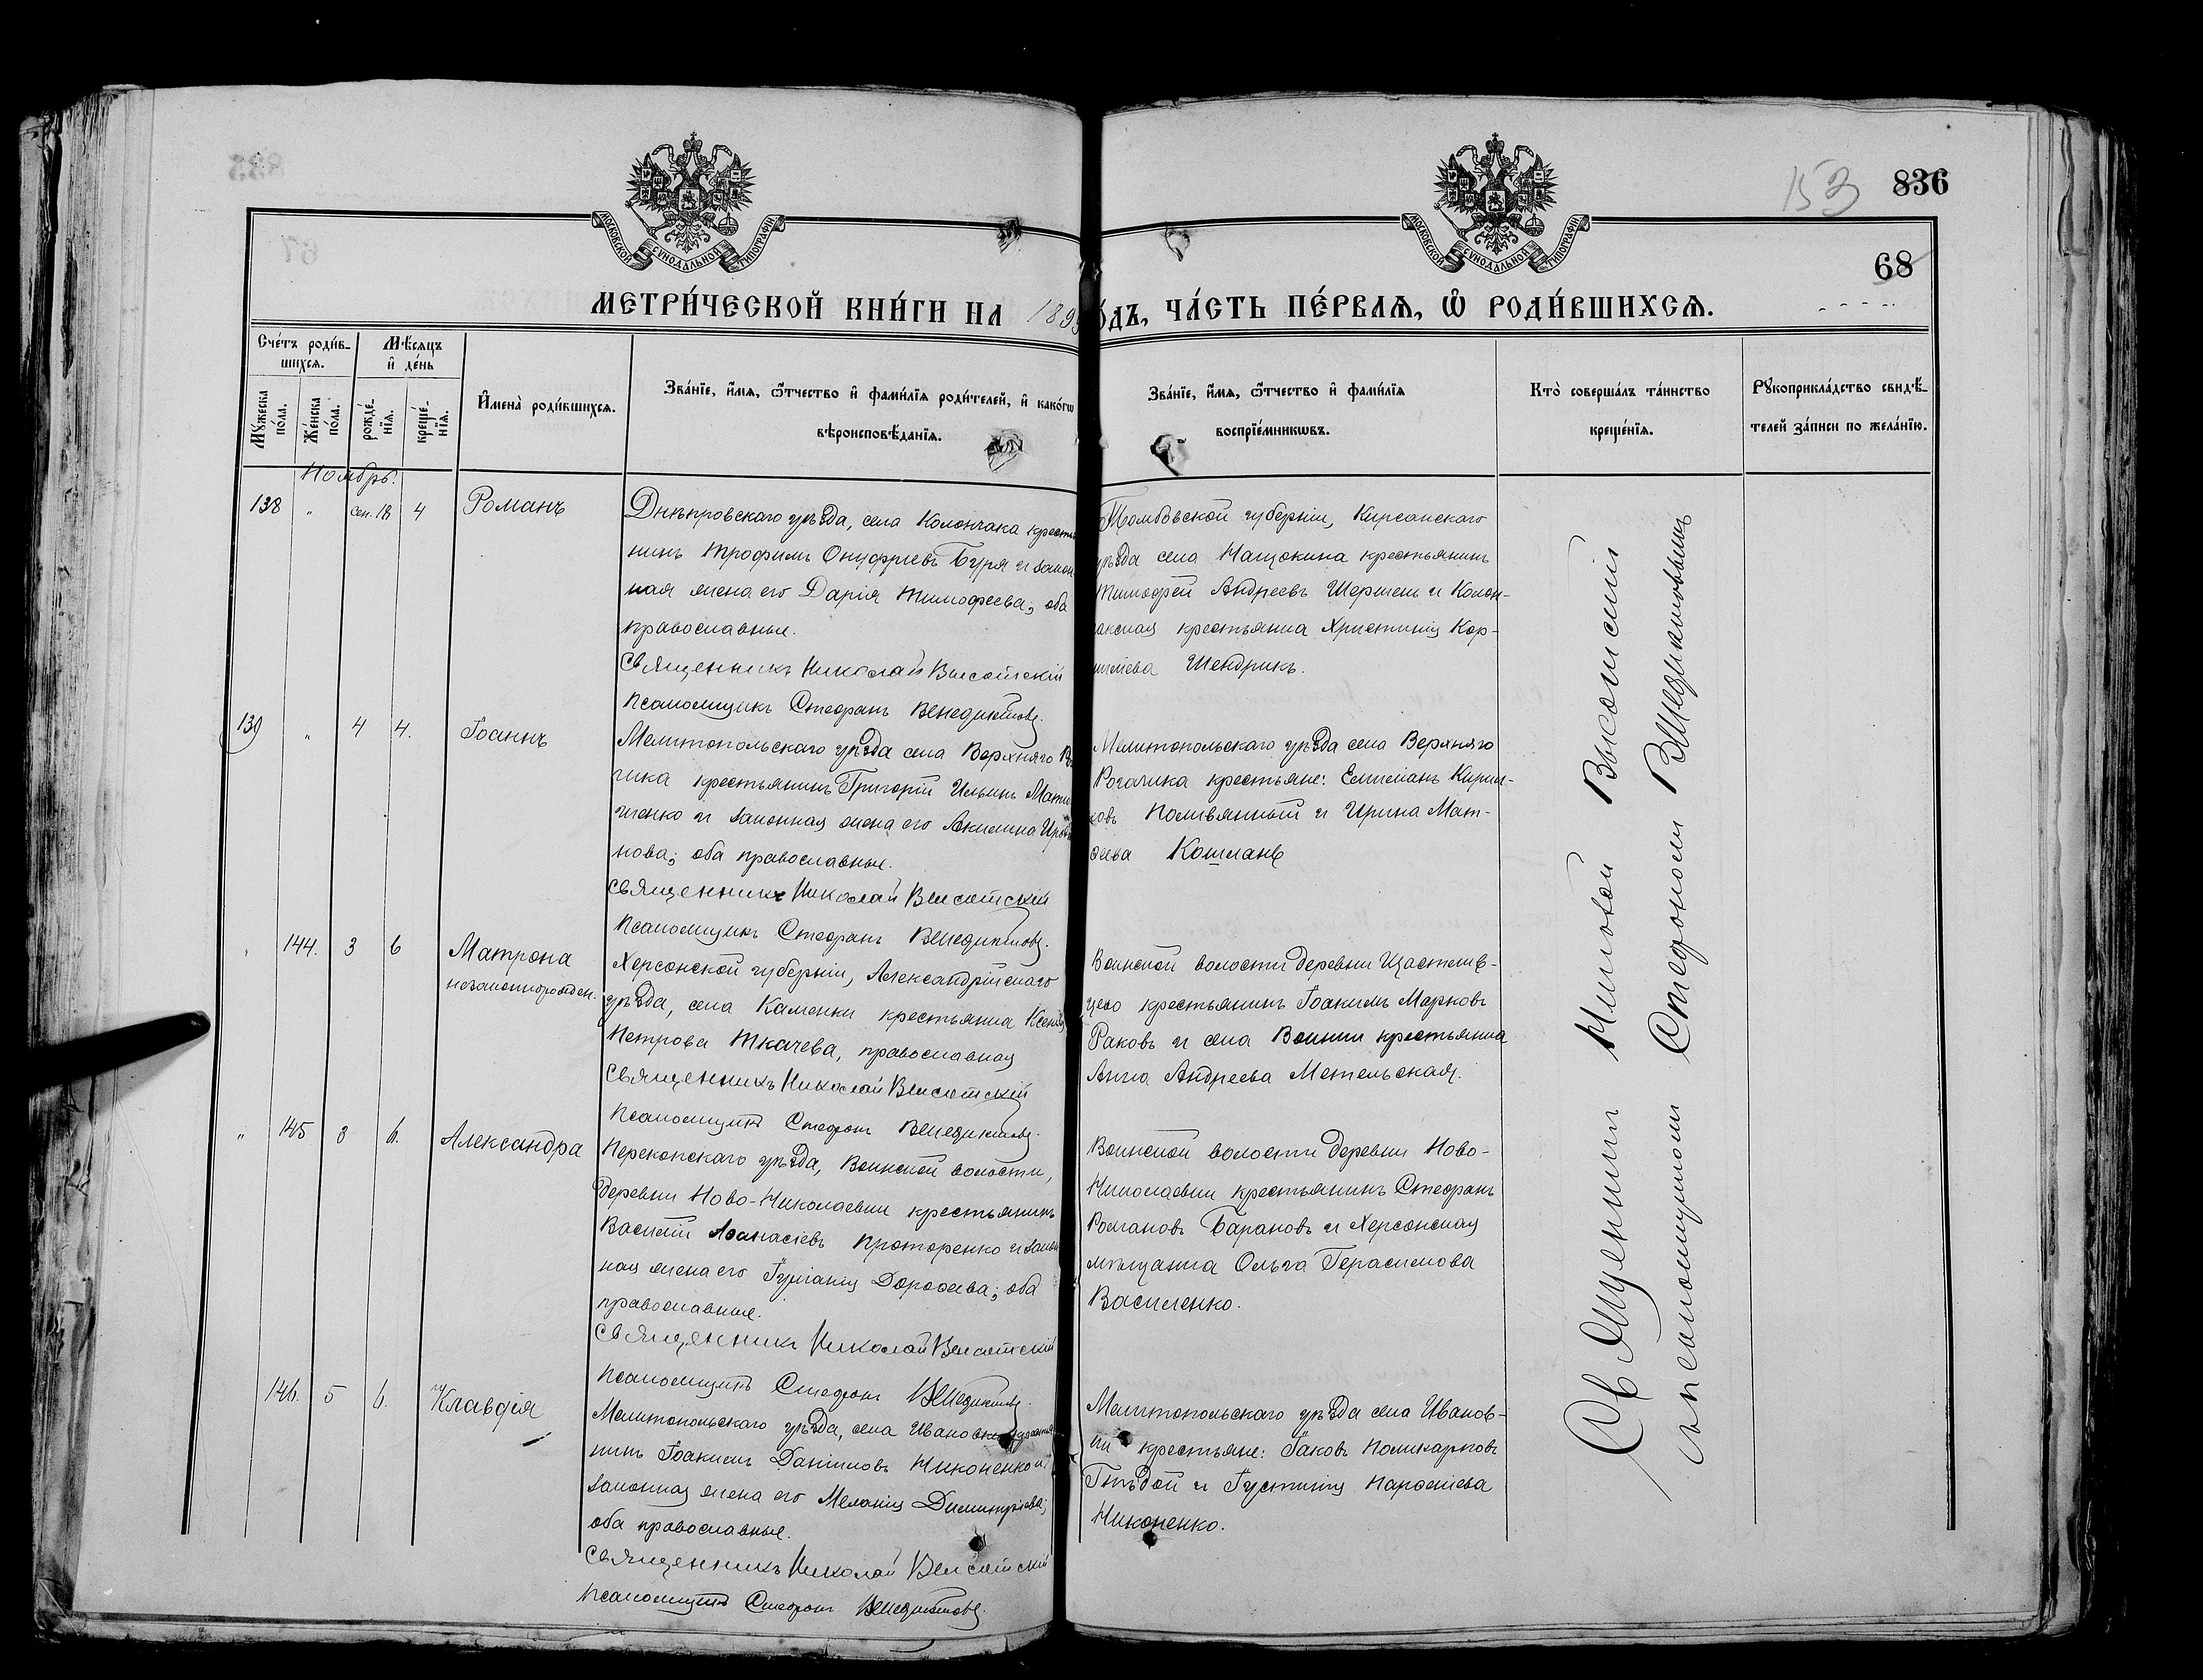 153 836
68
МОСКОВСКОЙ СУНОДАЛЬНОЙ ТИПОГРАФІИ
МОСКОВСКОЙ СУНОДАЛЬНОЙ ТИПОГРАФІИ
МЕТРИ́ЧЕСКОЙ КНИ́ГИ НА 189
О́ДЪ, ЧА́СТЬ ПЕ́РВАѦ, Ѽ РОДИ́ВШИХСѦ.
Сче́тъ роди́в-
шихсѧ.
Мѣ́сѧцъ
и҆ де́нь
Мꙋ́жеска по́ла.
Же́нска по́ла.
рожде́-
нїѧ.
креще́-
нїѧ.
И҆мена̀ роди́вшихсѧ.
Зва́нїе, и҆́мѧ, ѻ҆́тчество и҆ фами́лїѧ роди́телей, и҆ како́гѡ
вѣроисповѣ́данїѧ.
Зва́нїе, и҆́мѧ, ѻ҆́тчество и҆ фами́лїѧ
воспрїе́мникѡвъ.
Кто̀ соверша́лъ та́инство
креще́нїѧ.
Рꙋкоприкла́дство свидѣ́-
телей за́писи по жела́нїю.
Ноябрь.
138 " сен. 18 4 Романъ
Днѣпровскаго уѣзда, села Колончака крестья
нинъ Трофимъ Онуфріевъ Буря и закон
ная жена его Дарія Тимофеева; оба
православные.
Священникъ Николай Высотскій
Псаломщикъ Стефанъ Венедиктовъ.
Тамбовской губерніи, Кирсанскаго
уѣзда села Нащокина крестьянинъ
Тимофей Андреевъ Шершень и Колон-
чакская крестьянка Христинія Кор-
Шендрикъ.
139 " 4 4. Іоаннъ
Мелитопольскаго уѣзда села Верхняго Ро
чика крестьянинъ Григорій Ильинъ
и законная жена его Акилина
нова; оба православные.
Священникъ Николай Высотскій
Псаломщикъ Стефанъ Венедиктовъ.
Мелитопольскаго уѣзда села Верхняго
Рогачика крестьяне: Емиліанъ Кирил-
ловъ Поливянный и Ирина Мат-
ѳеева
" 144. 3 6 Матрона
незаконнорожден.
Херсонской губерніи, Александрійскаго
уѣзда, села Каменки крестьянка Ксенія
Петрова Ткачева, православная
Священникъ Николай Высотскій
Псаломщикъ Стефанъ Венедиктовъ.
Воинской волости деревни Щастлив-
цево крестьянинъ Іоакимъ Марковъ
Раковъ и села Воинки крестьянка
Анна Андреева Метельская.
" 145 3 6. Александра
Перекопскаго уѣзда, Воинской волости,
деревни Ново-Николаевки крестьянинъ
Василій Аѳанасіевъ Проторенко и закон
ная жена его Іуліанія Дороѳеева; оба
православные.
Священникъ Николай Высотскій
Псаломщикъ Стефанъ Венедиктовъ.
Воинской волости деревни Ново-
Николаевки крестьянинъ Стефанъ
Романовъ Барановъ и Херсонская
мѣщанка Ольга Герасимова
Василенко.
146. 5 6. Клавдія
Мелитопольскаго уѣзда, села Ивановки крестья
нинъ Іоакимъ Даніиловъ Никоненко и
законная жена его Меланія Димитріева;
оба православные.
Священникъ Николай Высотскій
Псаломщикъ Стефанъ Венедиктовъ.
Мелитопольскаго уѣзда села Иванов-
ки крестьяне: Іаковъ Поликарповъ
Гнѣдой и Іустинія Парѳеніева
Никоненко.
Священникъ Николай Высотскій
съ псаломщикомъ Стефаномъ Венедиктовымъ